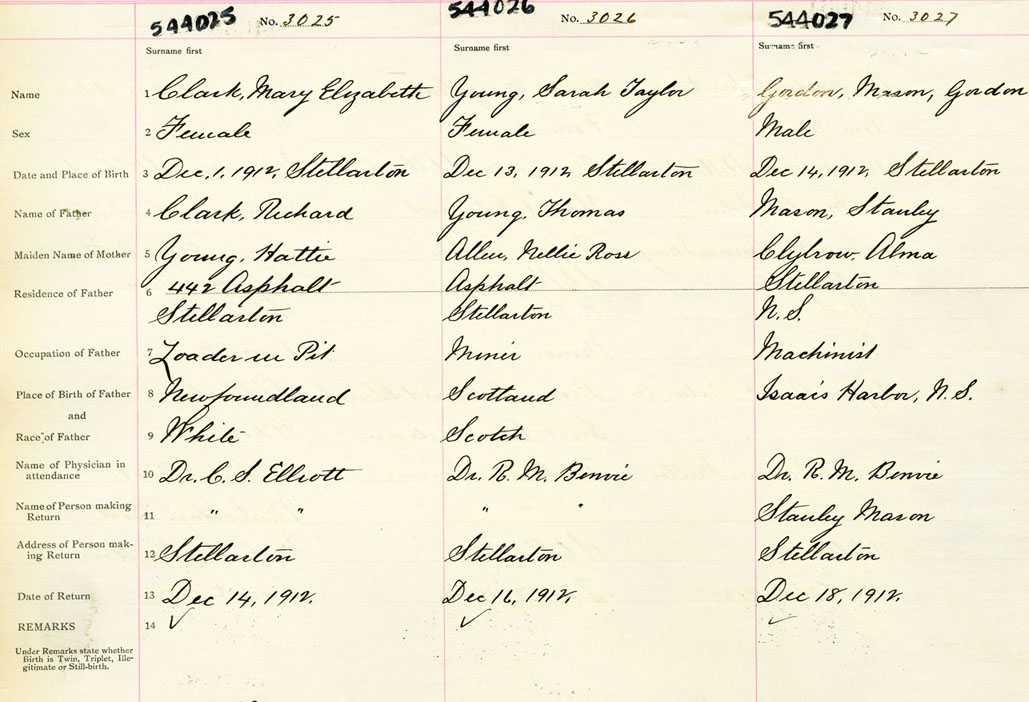 544025 No. 3025 544026 No. 3026 544027 No. 3027
Surname first Surname first Surname first
Name 1 Clark, Mary Elizabeth Young, Sarah Taylor Gordon, Mason, Gordon
Sex 2 Female Female Male
Date and Place of Birth 3 Dec. 1, 1912, Stellarton Dec 13, 1912 Stellarton Dec 14, 1912 Stellarton
Name of Father 4 Clark, Richard Young, Thomas Mason, Stanley
Maiden Name of Mother 5 Young, Hattie Allen, Nellie Ross Clybrow Alma
Residence of Father 6 442 Asphalt Asphalt Stellarton
Stellarton Stellarton N.S.
Occupation of Father 7 Loader in Pit Miner Machinist
Place of Birth of Father 8 Newfoundland Scotland Isaac's Harbor, N.S.
and
Race of Father 9 White Scotch
Name of Physician in
attendance 10 Dr. C. S. Elliott Dr. R. M. Benvie Dr. R. M. Benvie
Name of Person making
Return 11 " " " " Stanley Mason
Address of Person mak-
ing Return 12 Stellarton Stellarton Stellarton
Date of Return 13 Dec 14, 1912. Dec 16, 1912, Dec 18, 1912.
REMARKS 14 ✓ ✓ ✓
Under Remarks state whether
Birth is Twin, Triplet, Ille-
gitimate or Still-birth.